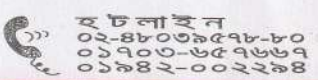 হটলাইন
০২-৪৮০৩৯৫৭৮-৮০
০১৭০৩-৬৫৭৬৬৭
০১৯৪২-০০২২৯৪